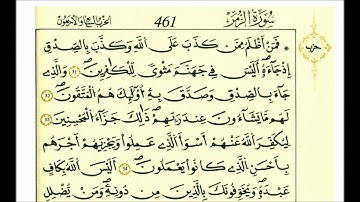 سُورَةُ الزُّمَرِ 461 الحزب السابع والأربعون
حزب
* فَمَنْ أَظْلَمُ مِمَّن كَذَبَ عَلَى اَللَّهِ وَكَذَّبَ بِالصِّدْقِ
إِذْ جَآءَهُۥٓ أَلَيْسَ فِي جَهَنَّمَ مَثْوىً لِّلْكَٰفِرِينَ 31 وَالذِي
جَآءَ بِالصِّدْقِ وَصَدَّقَ بِهِۦٓ أُوْلَٰٓئِكَ هُمُ اُلْمُتَّقُونَ 32
لَهُم مَّا يَشَآءُونَ عِندَ رَبِّهِمْ ذَٰلِكَ جَزَآءُ اُلْمُحْسِنِينَ 33
لِيُكَفِّرَ اَللَّهُ عَنْهُمْ أَسْوَأَ اَلذِي عَمِلُواْ وَيَجْزِيَهُمْ أَجْرَهُم
بِأَحْسَنِ اِلذِي كَانُواْ يَعْمَلُونَ 34 أَلَيْسَ اَللَّهُ بِكَافٍ
عَبْدَهُۥ وَيُخَوِّفُونَكَ بِالذِينَ مِن دُونِهِۦ وَمَنْ يُّضْلِلِ